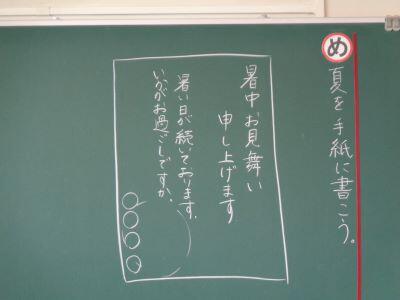 め
夏を手紙に書こう。
暑中お見舞い
申し上げます
暑い日が続いております。
いかがお過ごしですか。
○○○○